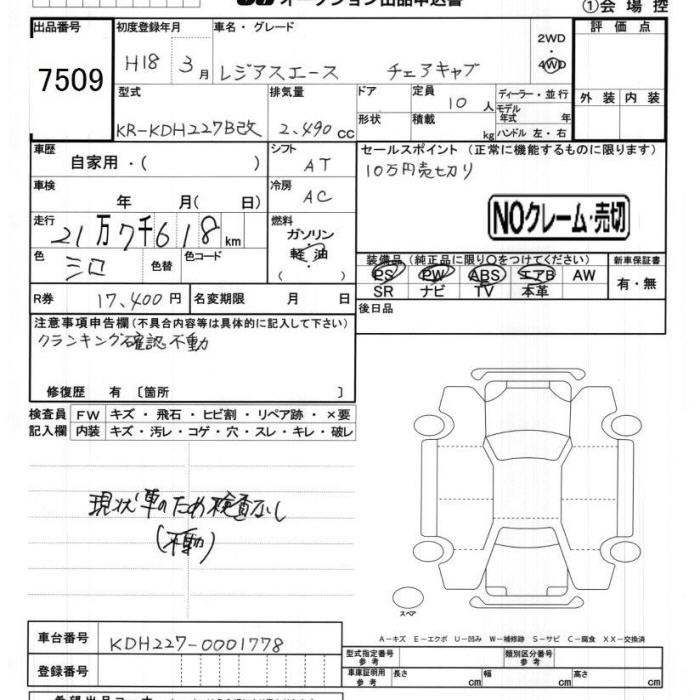 オークション出品申込書
①会場控
出品番号
7509
初度登録年月
H18 3月
車名・グレード
レジアスエース チェアキャブ
2WD
・
4WD
評価点
外装 内装
型式
KR-KDH227B改
排気量
2,490cc
ドア
形状
定員
10人
積載
kg
ディーラー・並行
モデル年式 年
ハンドル 左・右
車歴
自家用・( )
シフト
AT
セールスポイント (正常に機能するものに限ります)
10万円売切り
NOクレーム・売切
車検
年 月( 日)
冷房
AC
走行
21万7千618km
燃料
ガソリン
軽油
( )
色
シロ
色替
色コード
装備品(純正品に限り○をつけてください)
PS PW ABS エアB AW
SR ナビ TV 本革
新車保証書
有・無
R券
17,400円
名変期限 月 日
後日品
注意事項申告欄(不具合内容等は具体的に記入して下さい)
クランキング確認不動
修復歴 有 〔箇所 〕
検査員記入欄
FW キズ・飛石・ヒビ割・リペア跡・×要
内装 キズ・汚レ・コゲ・穴・スレ・キレ・破レ
現状車のため検査なし
(不動)
スペア
A-キズ E-エクボ U-凹み W-補修跡 S-サビ C-腐食 XX-交換済
車台番号
KDH227-0001778
登録番号
型式指定番号
参考
類別区分番号
参考
車庫証明用
参考
長さ cm 幅 cm 高さ cm